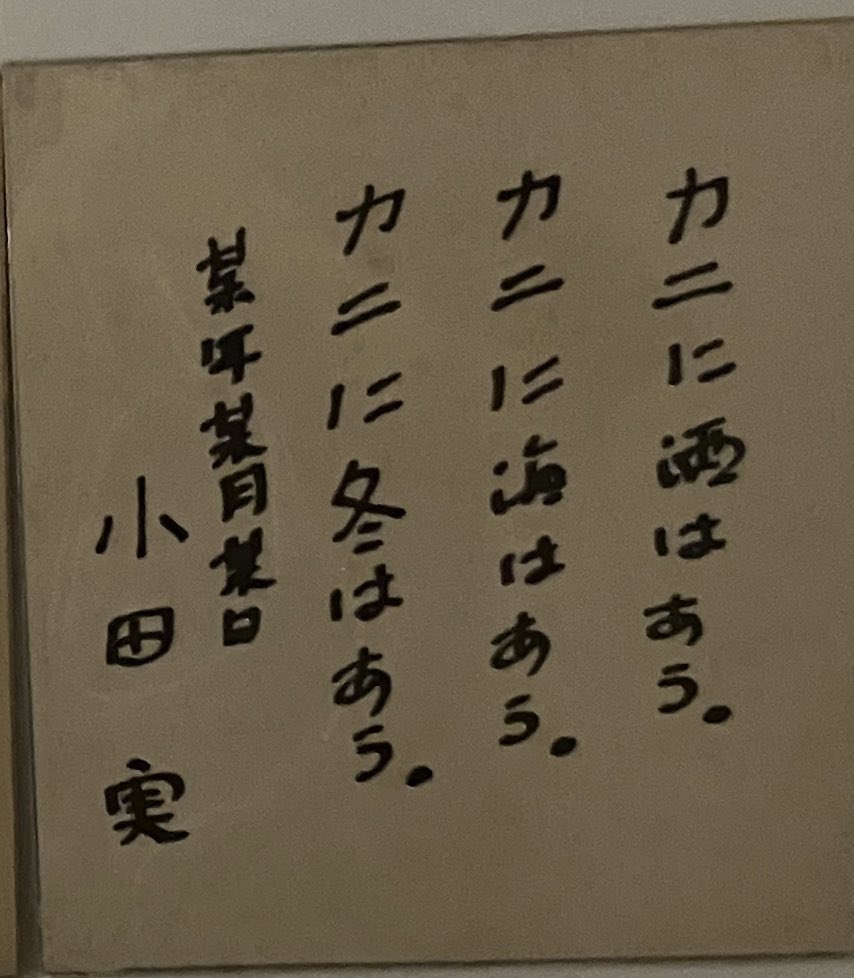 カニに酒はあう。
カニに海はあう。
カニに冬はあう。
某年某月某日
小田実